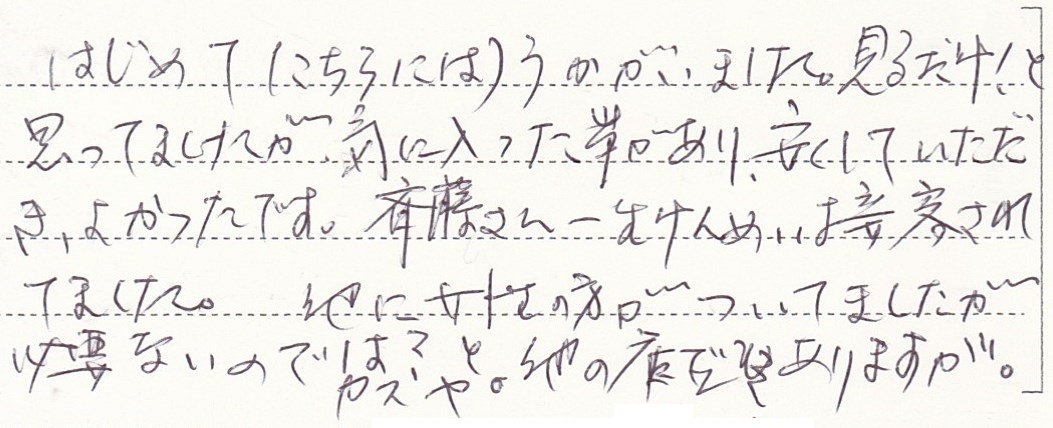 はじめて(こちらには)うかがいました。見るだけ!と
思ってましたが、気に入った帯があり、安くしていただ
き、よかったです。齊藤さん一生けんめい接客され
てました。 他に女性の方がついてましたが
必要ないのでは?と 他の店でもありますが。